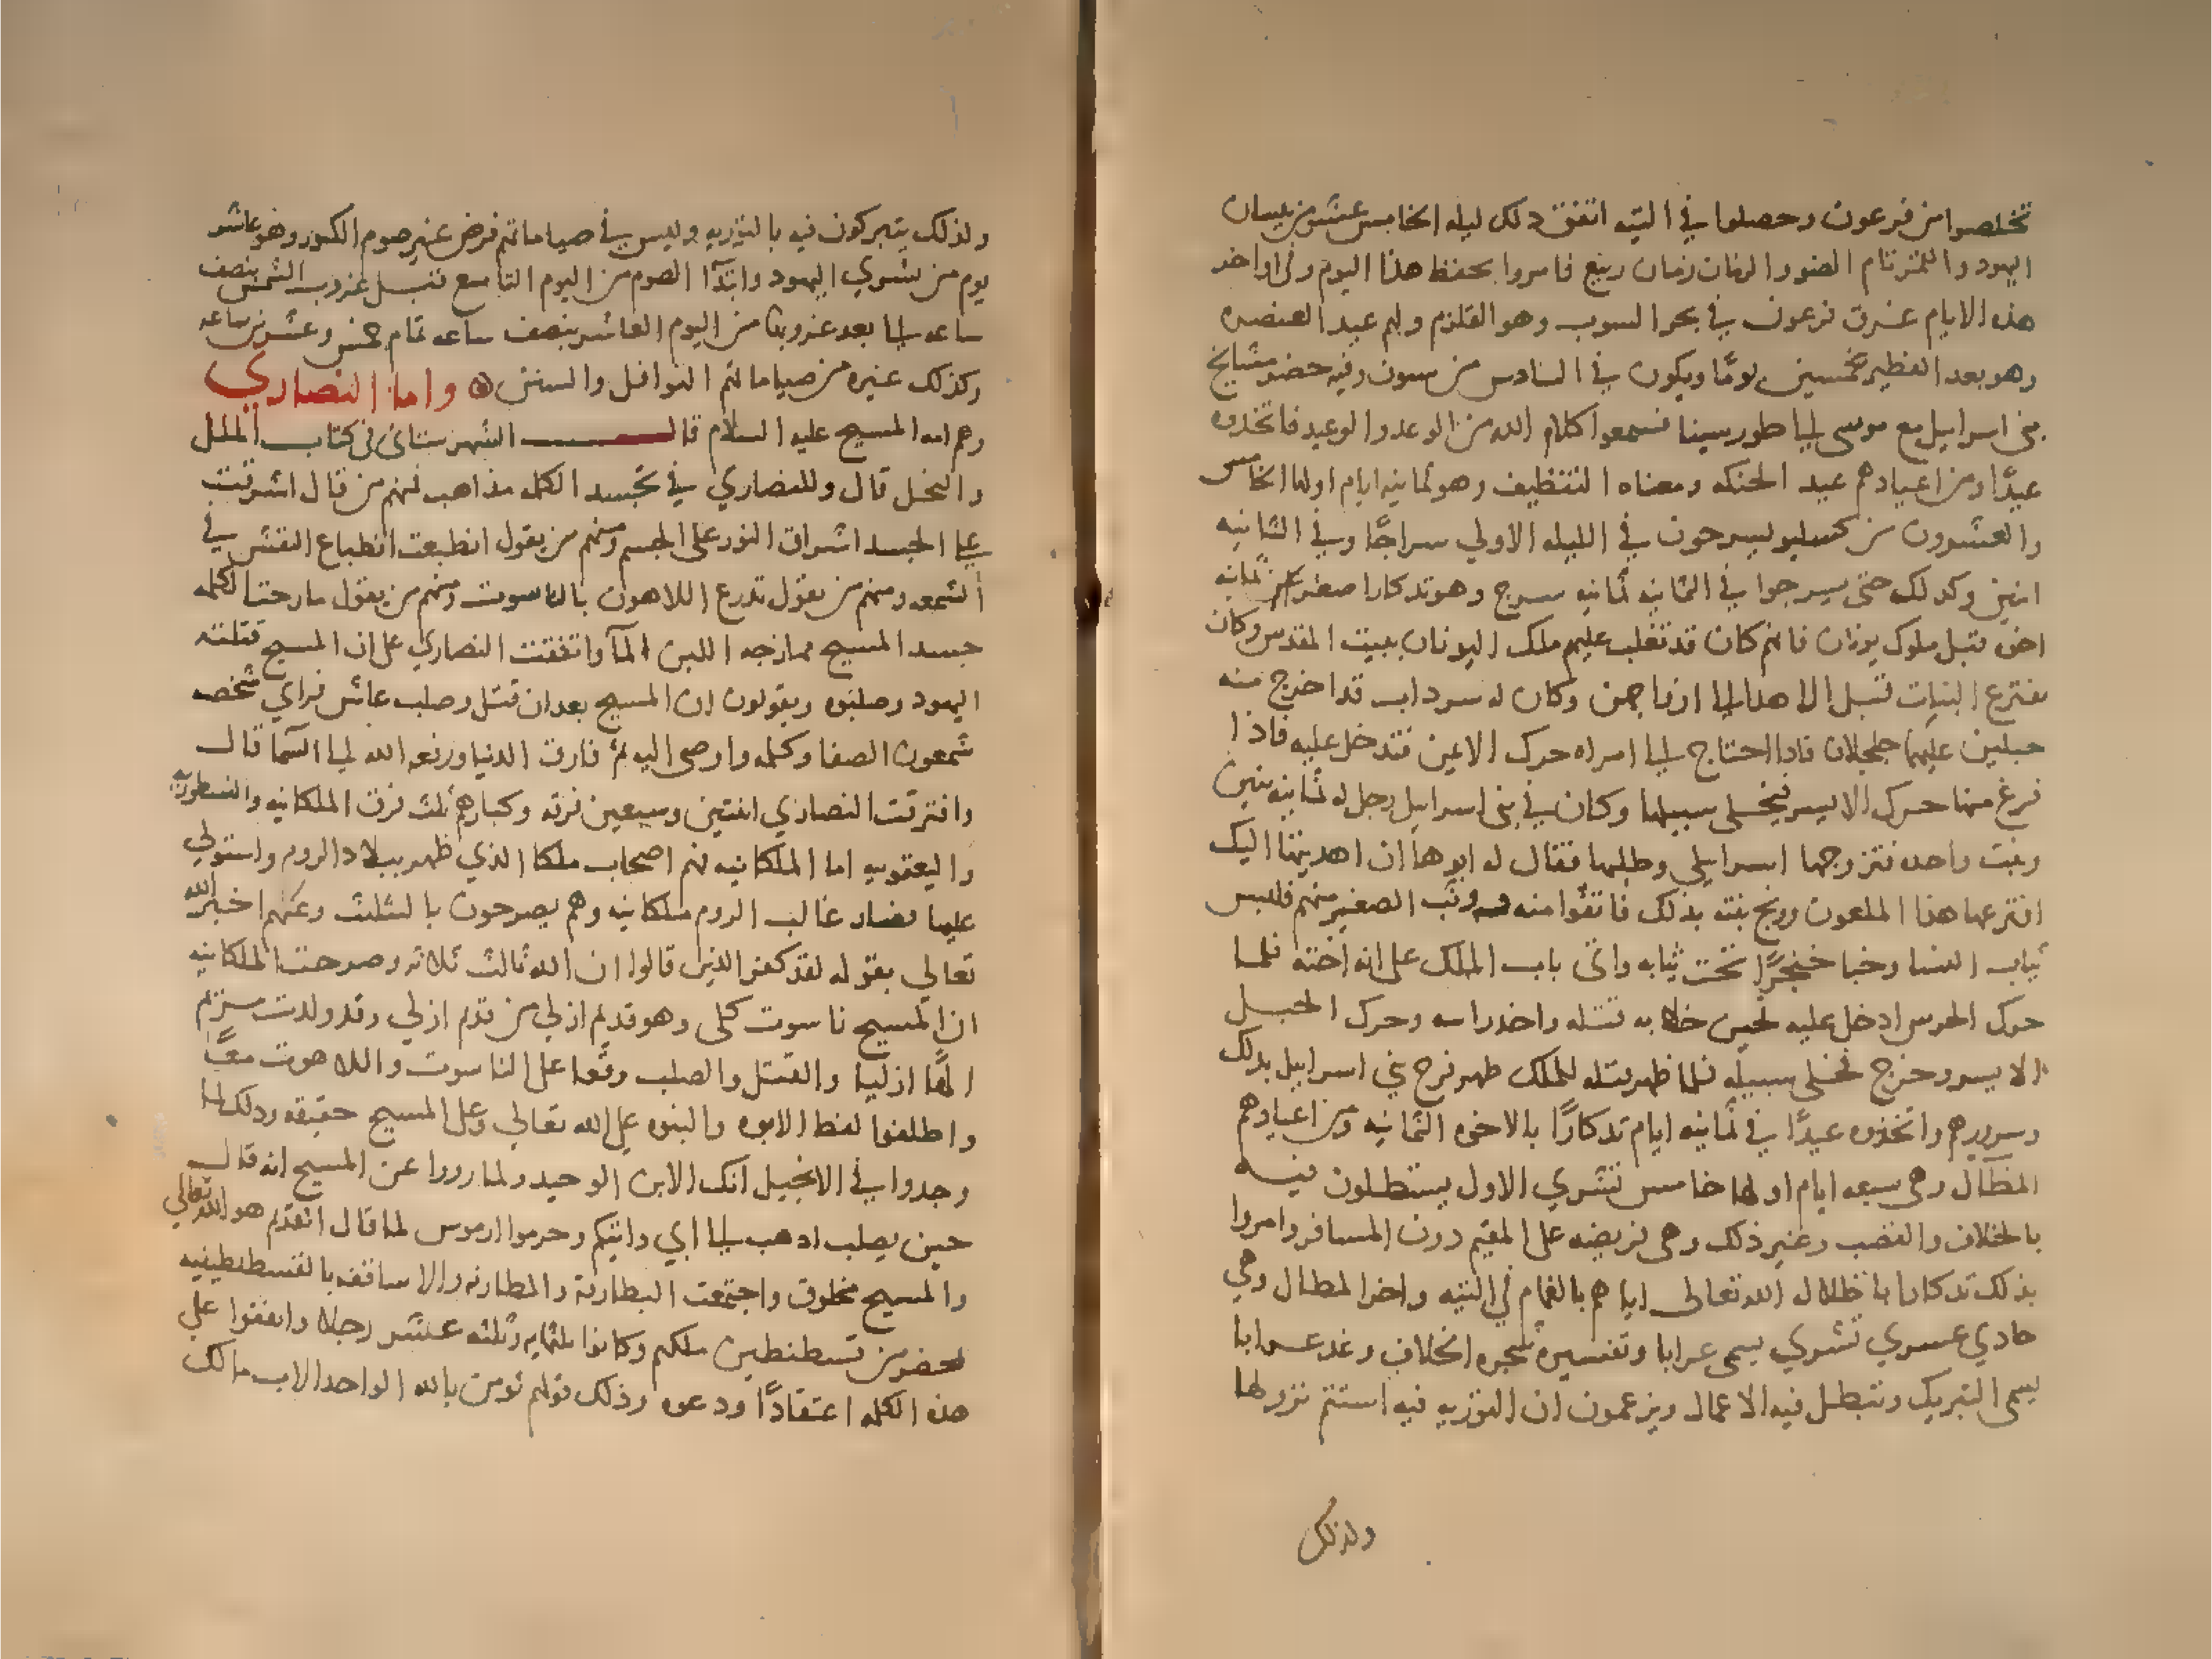 تخلصوا من فرعون وحصلوا في التيه اتفق ذلك ليله الخامس عشر من نيسان
اليهود والقمر تام الضور والزمان زمان ربيع فامروا بحفظ هذا اليوم وفي اواخر
هذه الايام غرق فرعون في بحر السوب وهو القلزم ولهم عيد العنصره
وهو بعد الفطير بخمسين يومًا ويكون في السادس من سيون وفيه حضر مشايخ
بني اسرايل مع موسى الي طور سينا فسمعوا كلام الله من الوعد والوعيد فاتخذوه
عيدًا ومن اعيادهم عيد الحنكه ومعناه التنظيف وهو ثمانيه ايام اولها الخامس
والعشرون من كسليو يسرجون في الليله الاولي سراجًا وفي الثانيه
اثنين وكذلك حتى يسرجوا في الثامنه ثمانيه سرج وهو تذكار اصغر ثمانيه
اخوه قتل ملوك يونان فانهم كان قد تغلب عليهم ملك اليونان ببيت المقدس وكان
يفترع البنات قبل الاهدا الي ازواجهن وكان له سرداب قد اخرج منه
حبلين عليهما جلجلان فاذا احتاج الي امراه حرك الايمن فتدخل عليه فاذا
فرغ منها حرك الايسر فيخلي سبيلها وكان في بني اسرايل رجل له ثمانيه بنين
وبنت واحده فتزوجها اسرايلي وطلبها فقال له ابوها ان اهديتها اليك
افترعها هذا الملعون ووبخ بنيه بذلك فانفوا منه ووثب الصغير منهم فلبس
ثياب النسا وخبا خنجرًا تحت ثيابه واتى باب الملك على انه اخته فلما
حرك الجرس ادخل عليه فحين خلا به قتله واخذ راسه وحرك الحبل
الايسر وخرج فخلي سبيله فلما ظهر قتله للملك ظهر فرح بني اسرايل بذلك
وسرورهم واتخذوه عيدًا في ثمانيه ايام تذكارًا بالاخوه الثمانيه ومن اعيادهم
المظال وهي سبعه ايام اولها خامس تشري الاول يستظلون فيه
بالخلاف والقصب وغير ذلك وهي فريضه على المقيم دون المسافر وامروا
بذلك تذكارا باظلال الله تعالى اياهم بالغمام في التيه واخر المظال وهي
حادي عشري تشري يسمى عرابا وتفسيره شجره الخلاف وغد عرابا
يسمى التبريك وتبطل فيه الاعمال ويزعمون ان التوريه فيه استتم نزولها
ولذلك
ولذلك يتبركون فيه بالتوريه وليس في صياماتهم فرض غير صوم الكبور وهو عاشر
يوم من تشري اليهود وابتدا الصوم من اليوم التاسع قبل غروب الشمس بنصف
ساعه الي بعد غروبها من اليوم العاشر بنصف ساعه تمام خمس وعشرين ساعه
وكذلك غيره من صياماتهم النوافل والسنن واما النصاري
وهم امه المسيح عليه السلام قال الشهرستاني في كتاب الملل
والنحل قال وللنصاري في تجسد الكلمه مذاهب فمنهم من قال اشرقت
علي الجسد اشراق النور على الجسم ومنهم من يقول انطبعت انطباع النقش في
الشمعه ومنهم من يقول تدرع اللاهوت بالناسوت ومنهم من يقول مازجت الكلمه
جسد المسيح ممازجه اللبن المآ واتفقت النصاري على ان المسيح قتلته
اليهود وصلبوه ويقولون ان المسيح بعد ان قتل وصلب عاش فراي شخصه
شمعون الصفا وكلمه واوصى اليه ثم فارق الدنيا ورفعه الله الي السما قال
وافترقت النصاري اثنتين وسبعين فرقه وكبارهم ثلث فرق الملكانيه والنسطوريه
واليعقوبيه اما الملكانيه فهم اصحاب ملكا الذي ظهر ببلاد الروم واستولي
عليها فصار غالب الروم ملكانيه وهم يصرحون بالتثليث وعنهم اخبر الله
تعالي بقوله لقد كفر الذين قالوا ان الله ثالث ثلاثه وصرحت الملكانيه
ان المسيح ناسوت كلى وهو قديم ازلي من قديم ازلي وقد ولدت مريم
الهًا ازليا والقتل والصلب وقعا على الناسوت واللاهوت معًا
واطلقوا لفظ الابوه والبنوه على الله تعالي وعلى المسيح حقيقه وذلك لما
وجدوا في الانجيل انك الابن الوحيد ولما رووا عن المسيح انه قال
حين يصلب اذهب الي ابي وابيكم وحرموا اريوس لما قال القديم هو الله تعالي
والمسيح مخلوق واجتمعت البطارقة والمطارنه والاساقفه بالقسطنطينيه
بحضر من قسطنطين ملكهم وكانوا ثلثمايه وثلثه عشر رجلا واتفقوا علي
هذه الكلمه اعتقادًا ودعوه وذلك قولهم نومن بالله الواحد الاب مالك